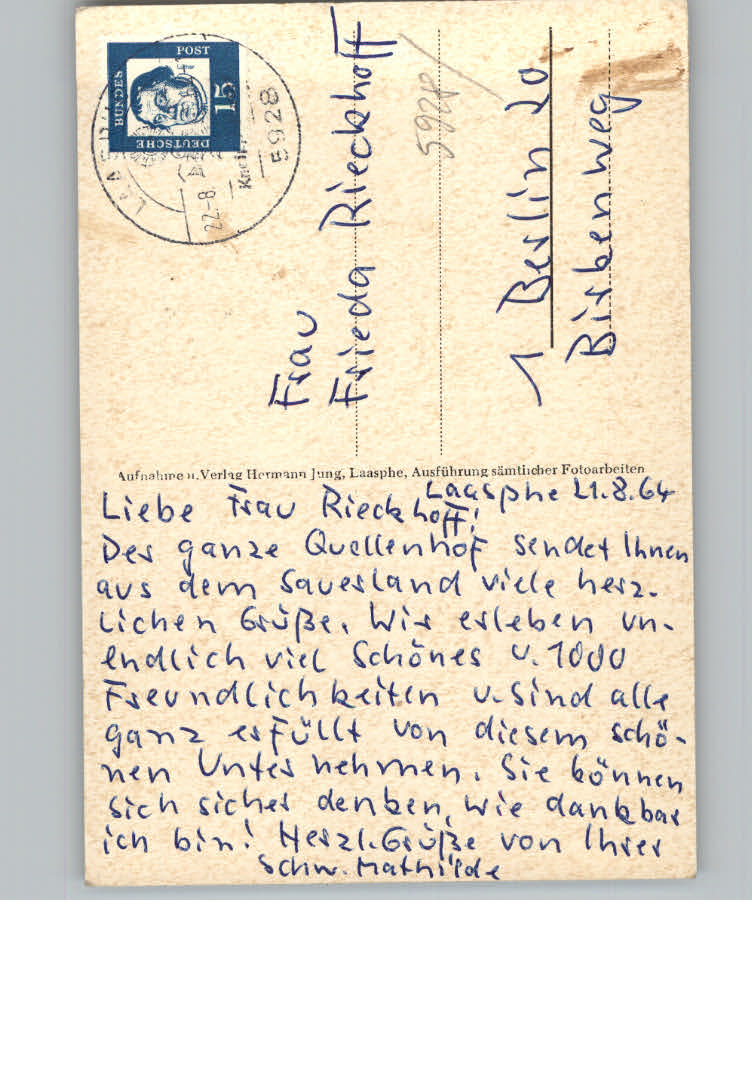 Laasphe 21.8.64
Liebe Frau Rieckhoff!
Der ganze Quellenhof sendet Ihnen
aus dem Sauerland viele herz-
lichen Grüße. Wir erleben un-
endlich viel Schönes u. 1000
Freundlichkeiten u. sind alle
ganz erfüllt von diesem schö-
nen Unternehmen. Sie können
sich sicher denken, wie dankbar
ich bin! Herzl. Grüße von Ihrer
Schw. Mathilde
Aufnahme u. Verlag Hermann Jung, Laasphe, Ausführung sämtlicher Fotoarbeiten
Frau
Frieda Rieckhoff
5928
1 Berlin 20
Birkenweg
DEUTSCHE
BUNDES
POST
15
22.-8.
5928